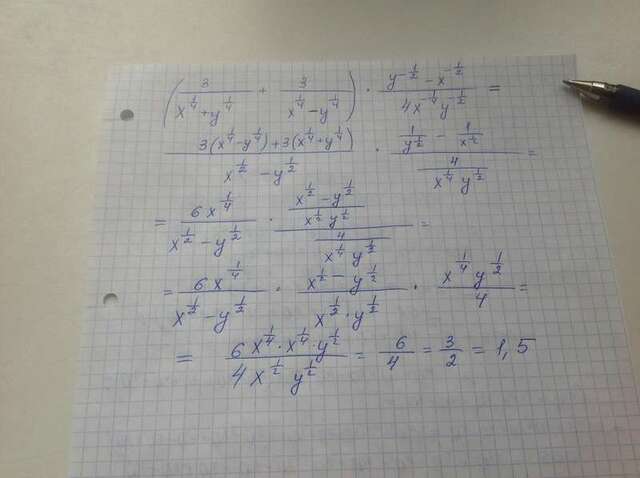 (3/(x^(1/4)+y^(1/4)) + 3/(x^(1/4)-y^(1/4))) · (y^(-1/2)-x^(-1/2))/(4x^(-1/4)y^(-1/2)) =
(3(x^(1/4)-y^(1/4))+3(x^(1/4)+y^(1/4)))/(x^(1/2)-y^(1/2)) · (1/y^(1/2) - 1/x^(1/2))/(4/(x^(1/4)y^(1/2))) =
= 6x^(1/4)/(x^(1/2)-y^(1/2)) · ((x^(1/2)-y^(1/2))/(x^(1/2)y^(1/2)))/(4/(x^(1/4)y^(1/2))) =
= 6x^(1/4)/(x^(1/2)-y^(1/2)) · (x^(1/2)-y^(1/2))/(x^(1/2)·y^(1/2)) · (x^(1/4)y^(1/2))/4 =
= (6x^(1/4)·x^(1/4)·y^(1/2))/(4x^(1/2)y^(1/2)) = 6/4 = 3/2 = 1,5